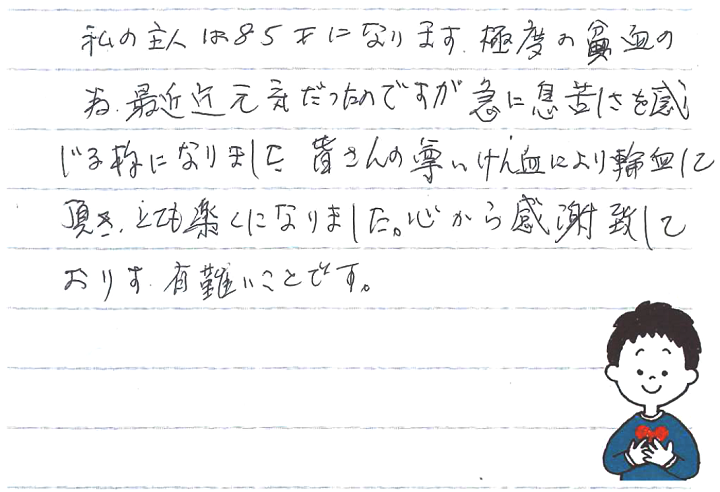 私の主人は85才になります.極度の貧血の
為.最近迄元気だったのですが急に息苦しさを感
じる様になりました.皆さんの尊いけん血により輸血して
頂き、とても楽くになりました。心から感謝致して
おります.有難いことです。